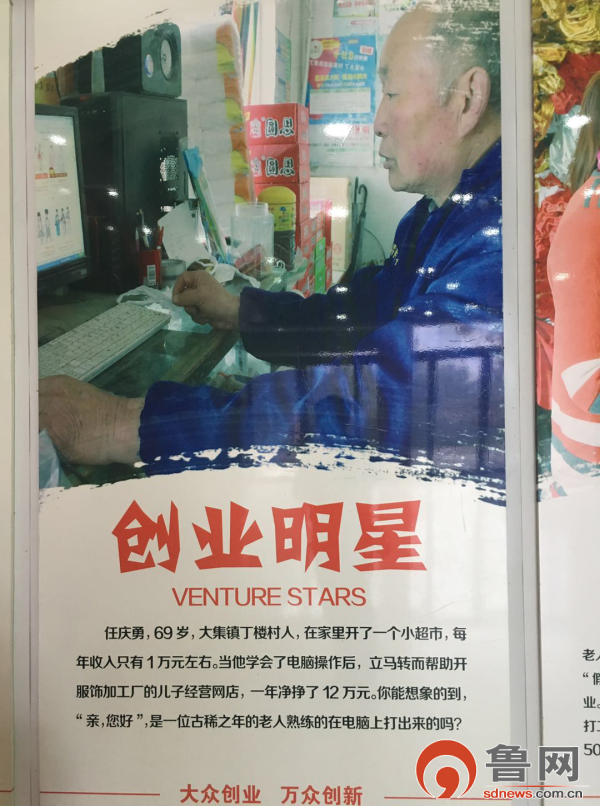 恩回吉
恩回吉
创业明星
VENTURE STARS
任庆勇，69岁，大集镇丁楼村人，在家里开了一个小超市，每
年收入只有1万元左右。当他学会了电脑操作后，立马转而帮助开
服饰加工厂的儿子经营网店，一年净挣了12万元。你能想象的到，
“亲，您好”，是一位古稀之年的老人熟练的在电脑上打出来的吗？
老
“假
业。
打工
50
大众创业 万众创新
鲁网
sdnews.com.cn